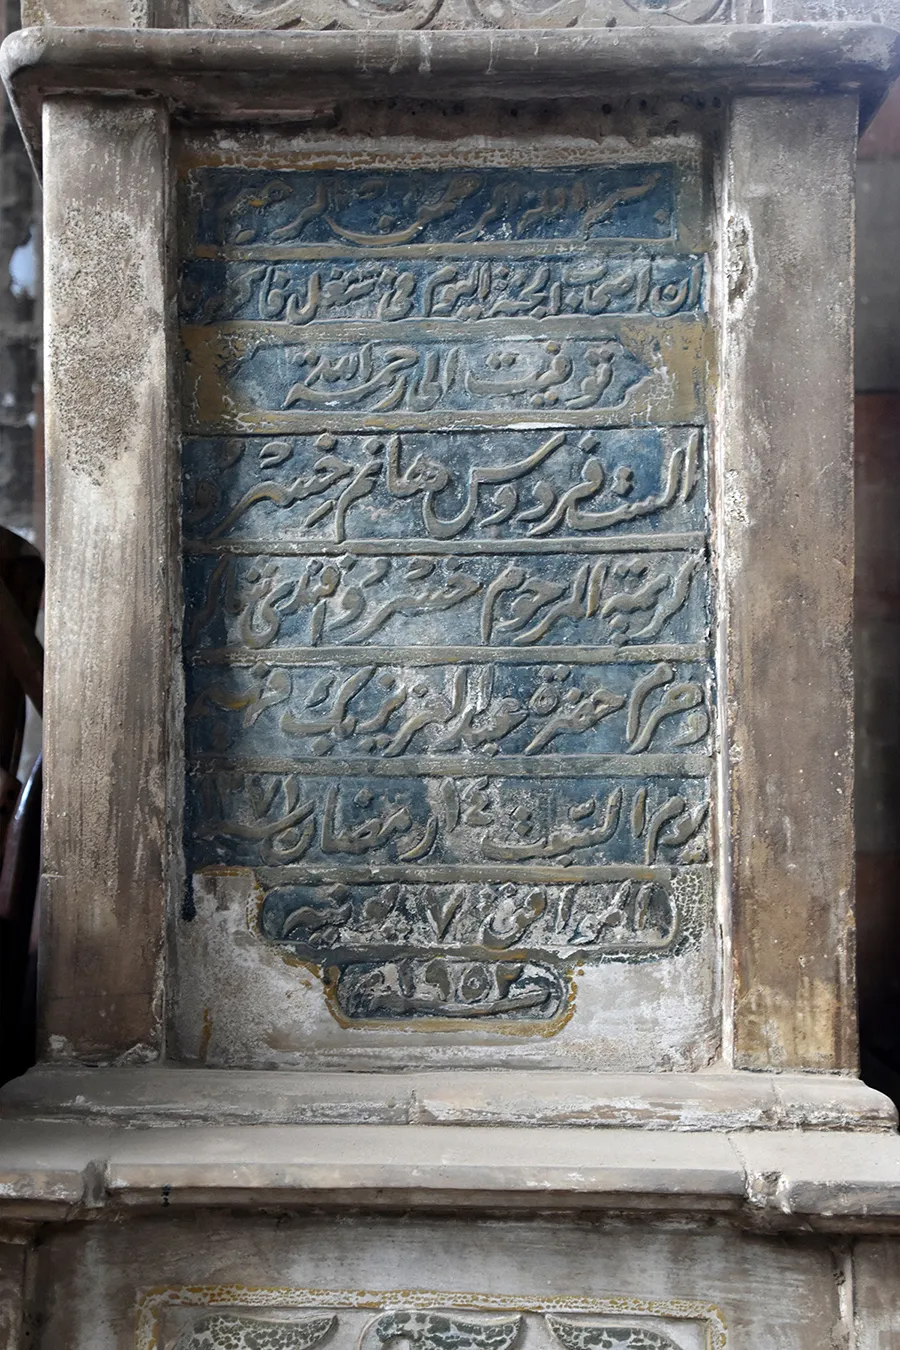 بسم الله الرحمن الرحيم
ان اصحاب الجنة اليوم فى شغل فاكهون
توفيت الى رحمة الله
الست فردوس هانم خسرو
كريمة المرحوم خسرو افندى
وحرم حضرة عبد العزيز بك فهمى
يوم السبت ١٤ رمضان سنة ١٣٧١
الموافق ٧ يونيه
سنة ١٩٥٢م